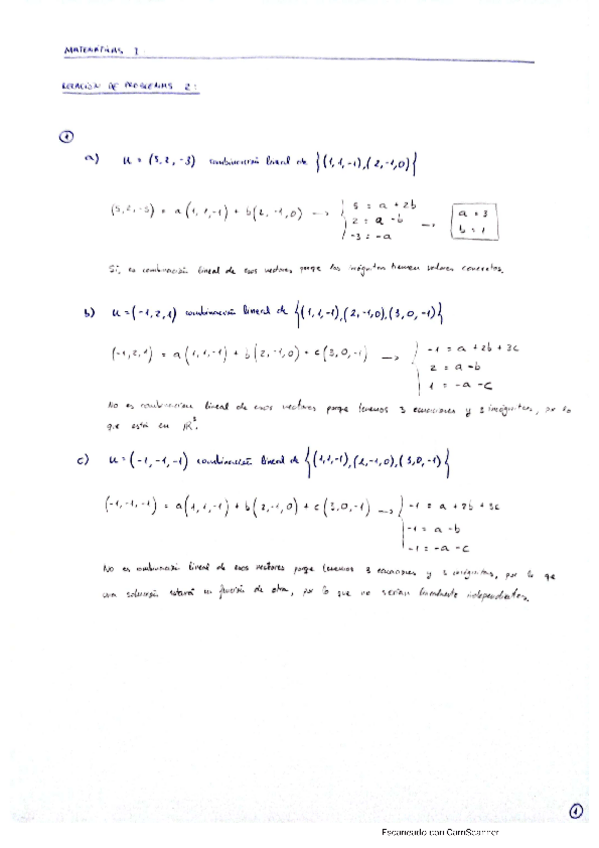 MATEMÁTICAS I
RELACIÓN DE PROBLEMAS 2:
1
a) u = (5, 2, -3) combinación lineal de {(1,1,-1),(2,-1,0)}
(5,2,-3) = a(1,1,-1) + b(2,-1,0) → { 5 = a + 2b
2 = a - b
-3 = -a
→ a = 3
b = 1
Sí, es combinación lineal de esos vectores porque las incógnitas tienen valores concretos.
b) u = (-1,2,1) combinación lineal de {(1,1,-1),(2,-1,0),(3,0,-1)}
(-1,2,1) = a(1,1,-1) + b(2,-1,0) + c(3,0,-1) → { -1 = a + 2b + 3c
2 = a - b
1 = -a - c
No es combinación lineal de esos vectores porque tenemos 3 ecuaciones y 3 incógnitas, por lo
que está en ℝ³.
c) u = (-1,-1,-1) combinación lineal de {(1,1,-1),(2,-1,0),(3,0,-1)}
(-1,-1,-1) = a(1,1,-1) + b(2,-1,0) + c(3,0,-1) → { -1 = a + 2b + 3c
-1 = a - b
-1 = -a - c
No es combinación lineal de esos vectores porque tenemos 3 ecuaciones y 3 incógnitas, por lo que
una solución estará en función de otra, por lo que no serían linealmente independientes.
1
Escaneado con CamScanner